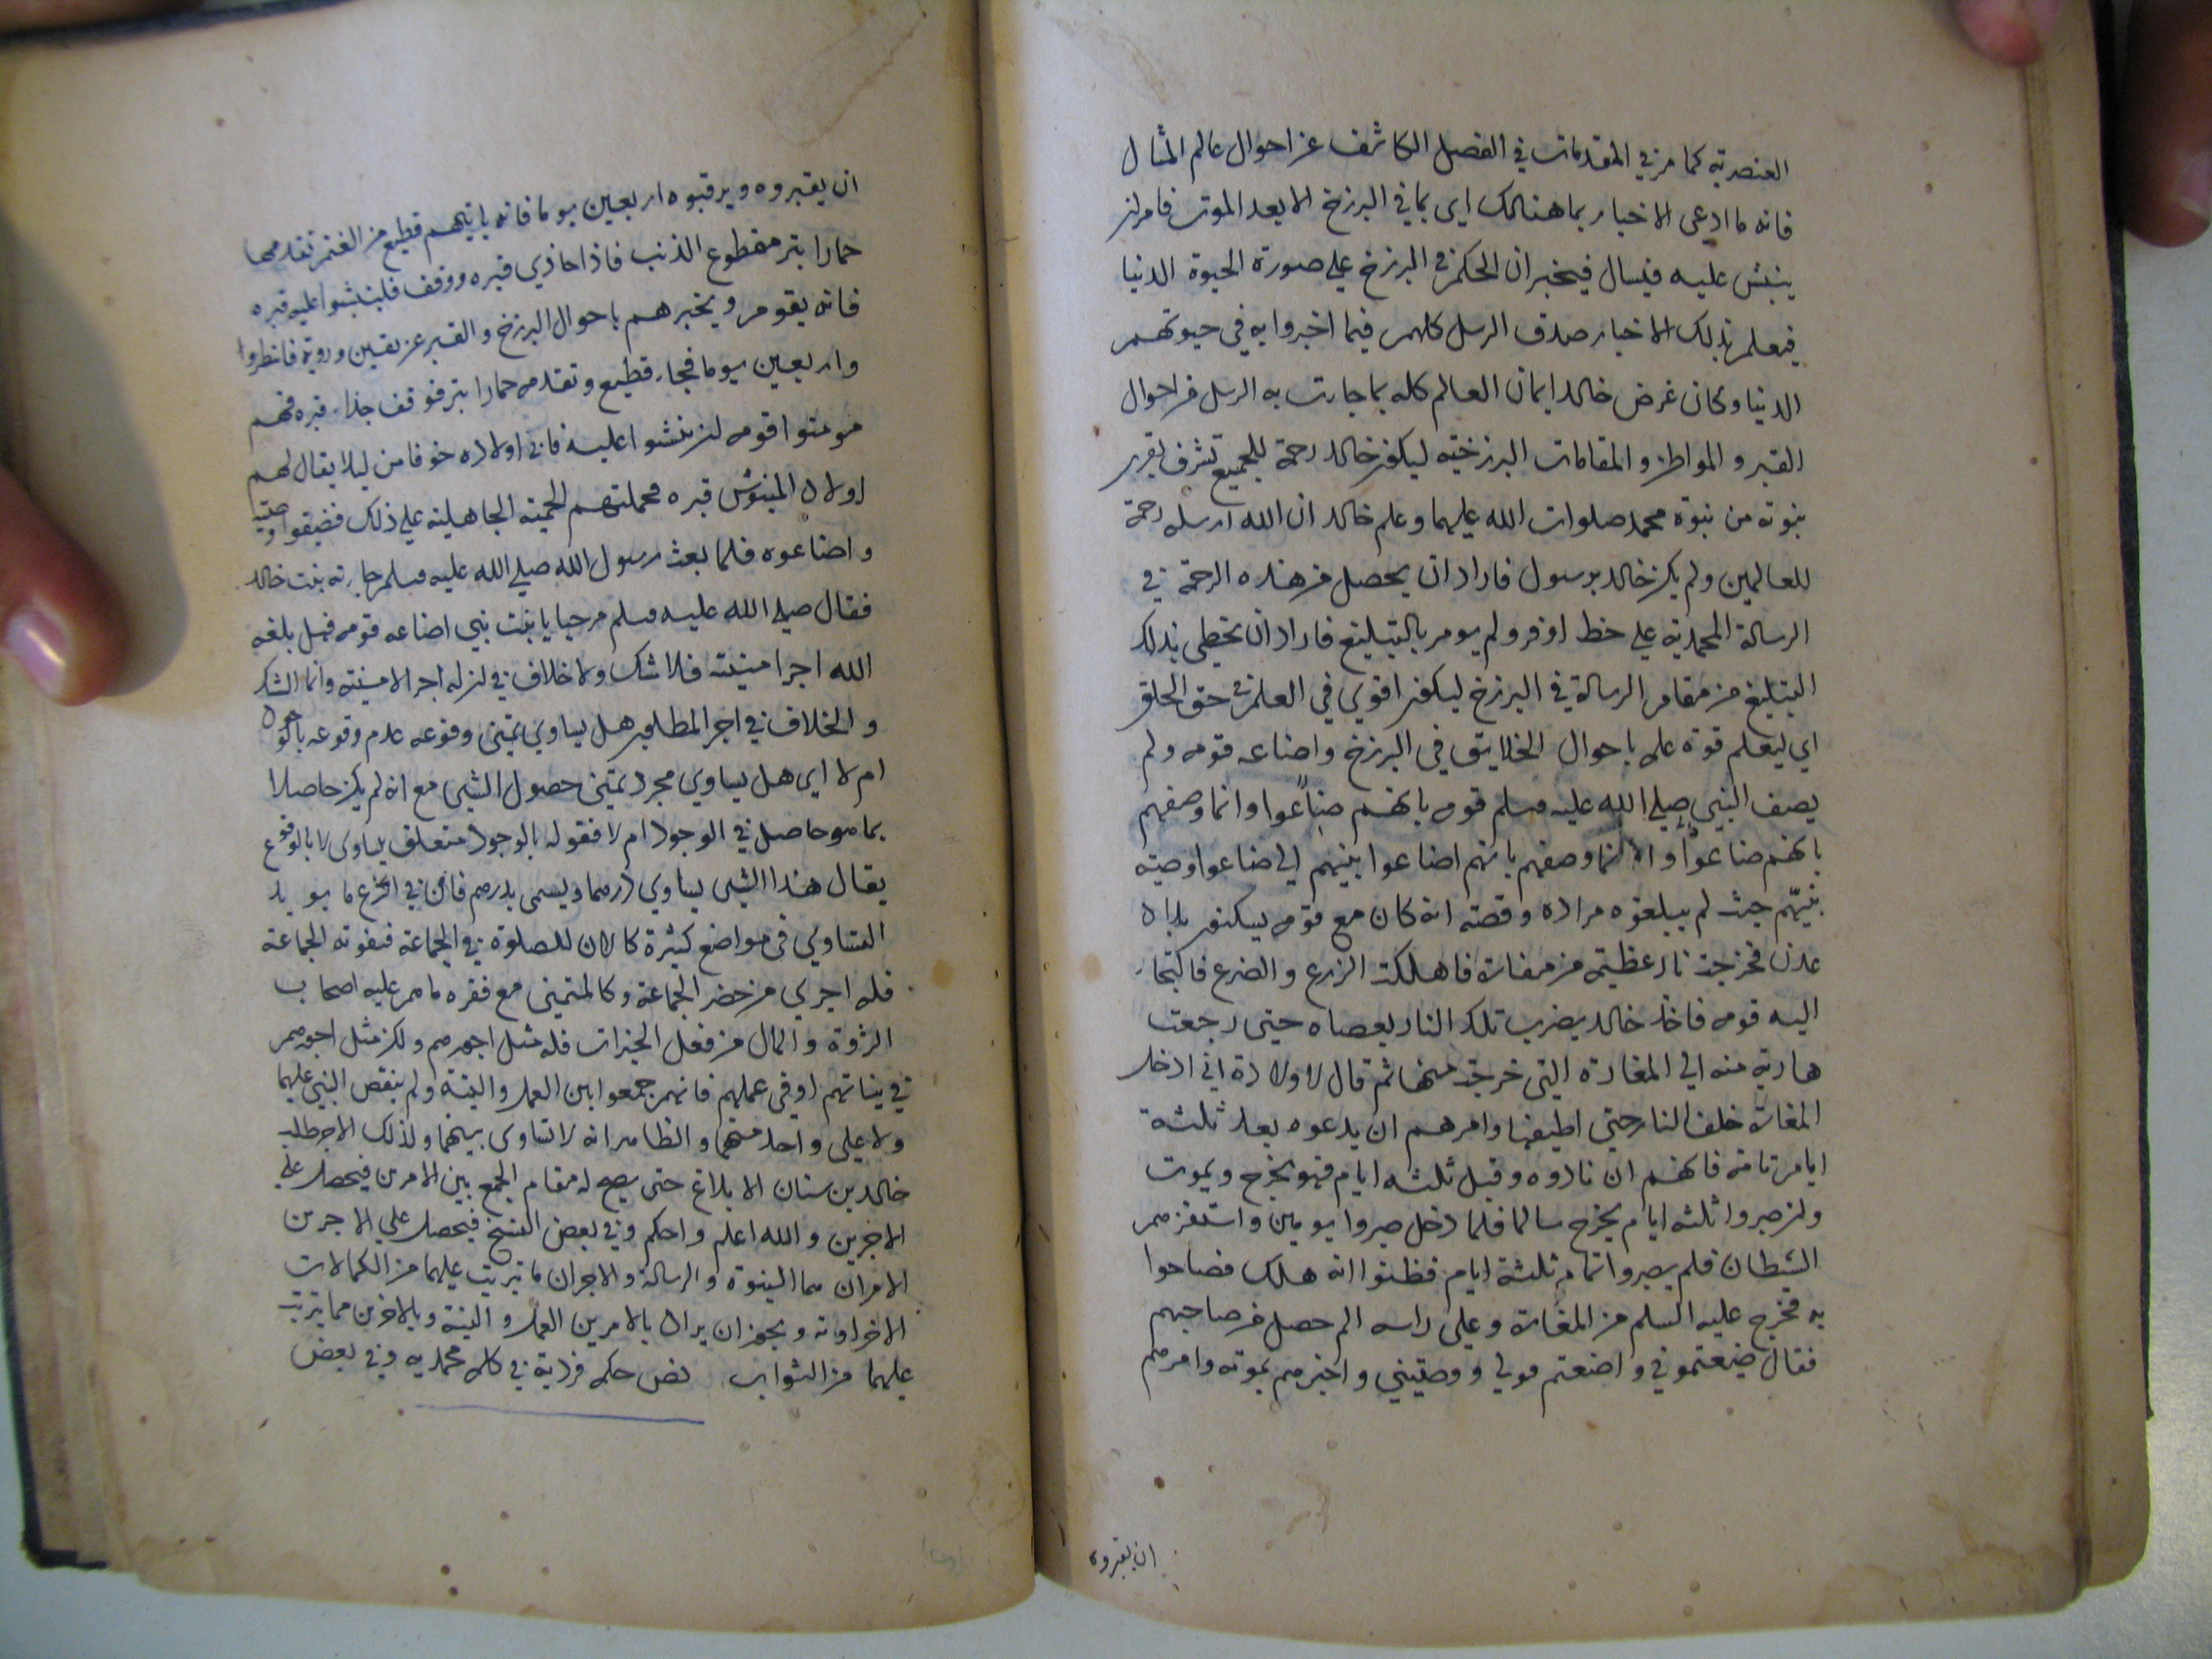 العنصرية كما مر في المقدمات في الفصل الكاشف عن احوال عالم المثال
فانه ما ادعى الاخبار بما هنالك اي بما في البرزخ الا بعد الموت فامر ان
ينبش عليه فيسال فيخبر ان الحكم في البرزخ علي صورة الحيوة الدنيا
فيعلم بذلك الاخبار صدق الرسل كلهم فيما اخبروا به في حيوتهم
الدنيا وكان غرض خالد ايمان العالم كله بما جاءت به الرسل من احوال
القبر و المواطن و المقامات البرزخية ليكون خالد رحمة للجميع تشرف بقرب
نبوته من نبوة محمد صلوات الله عليهما وعلم خالد ان الله ارسله رحمة
للعالمين ولم يكن خالد برسول فاراد ان يحصل من هذه الرحمة في
الرسالة المحمدية علي حظ اوفر ولم يومر بالتبليغ فاراد ان يحظي بذلك
التبليغ من مقام الرسالة في البرزخ ليكون اقوي في العلم في حق الخلق
اي ليعلم قوة علمه باحوال الخلايق في البرزخ واضاعه قومه ولم
يصف النبي صلي الله عليه وسلم قومه بانهم ضاعوا وانما وصفهم
بانهم ضاعوا و انما وصفهم بانهم اضاعوا نبيهم اي ضاعوا وصية
نبيهم حيث لم يبلغوه مراده وقصته انه كان مع قومه يسكنون بلاد
عدن فخرجت نار عظيمة من مغارة فاهلكت الزرع والضرع فالتجاء
اليه قومه فاخذ خالد يضرب تلك النار بعصاه حتي رجعت
هاربة منه الي المغارة التي خرجت منها ثم قال لاولاده اني ادخل
المغارة خلف النار حتي اطفيها وامرهم ان يدعوه بعد ثلثة
ايام تامة فانهم ان نادوه وقبل ثلثه ايام فهو يخرج ويموت
وان صبروا ثلثه ايام يخرج سالما فلما دخل صبروا يومين واستفزهم
الشيطان فلم يصبروا تمام ثلثة ايام فظنوا انه هلك فصاحوا
به فخرج عليه السلم من المغارة وعلي راسه الم حصل من صياحهم
فقال ضيعتموني واضعتم قولي ووصيتي واخبرهم بموته وامرهم
ان يقبروه
ان يقبروه ويرقبوه اربعين يوما فانه ياتيهم قطيع من الغنم تقدمها
حمار ابتر مقطوع الذنب فاذا حاذي قبره ووقف فلينبشوا عليه قبره
فانه يقوم ويخبرهم باحوال البرزخ والقبر عن يقين ورؤية فانتظروا
واربعين يوما فجاء قطيع وتقدمه حمار ابتر فوقف حذاء قبره فهم
مومنوا قومه ان ينبشوا عليه فابي اولاده خوفا من ليلا يقال لهم
اولاد المنبوش قبره فحملتهم الحمية الجاهلية علي ذلك فضيعوا وصيته
واضاعوه فلما بعث رسول الله صلي الله عليه وسلم جاءته بنت خالد
فقال صلي الله عليه وسلم مرحبا يا بنت نبي اضاعه قومه فهل بلغه
الله اجر امنيته فلا شك ولا خلاف في ان له اجر الامنية وانما الشك
و الخلاف في اجر المطلوب هل يساوي تمني وقوعه عدم وقوعه بالوجود
ام لا اي هل يساوي مجرد تمني حصول الشي مع انه لم يكن حاصلا
بما هو حاصل في الوجود ام لا فقوله بالوجود متعلق بيساوي لا بالوقوع
يقال هذا الشي يساوي درهما ويسمي بدرهم فان في الشرع ما يويد
التساوي في مواضع كثيرة كالاتي للصلوة في الجماعة فتفوته الجماعة
فله اجر من حضر الجماعة وكالمتمني مع فقره ما هم عليه اصحاب
الثروة والمال من فعل الخيرات فله مثل اجورهم ولكن مثل اجورهم
في نياتهم او في عملهم فانهم جمعوا بين العمل والنية ولم ينص النبي عليهما
ولا علي واحد منهما والظاهر انه لا تساوي بينهما ولذلك الاجر طلب
خالد بن سنان الابلاغ حتي يصح له مقام الجمع بين الامرين فيحصل علي
الاجرين والله اعلم واحكم وفي بعض النسخ فيحصل علي الاجرين
الامران هما النبوة والرسالة والاجران ما ترتب عليهما من الكمالات
الاخراوية ويجوز ان يراد بالامرين العمل والنية وبالاجرين مما يترتب
عليهما من الثواب فص حكمة فردية في كلمة محمديه وفي بعض